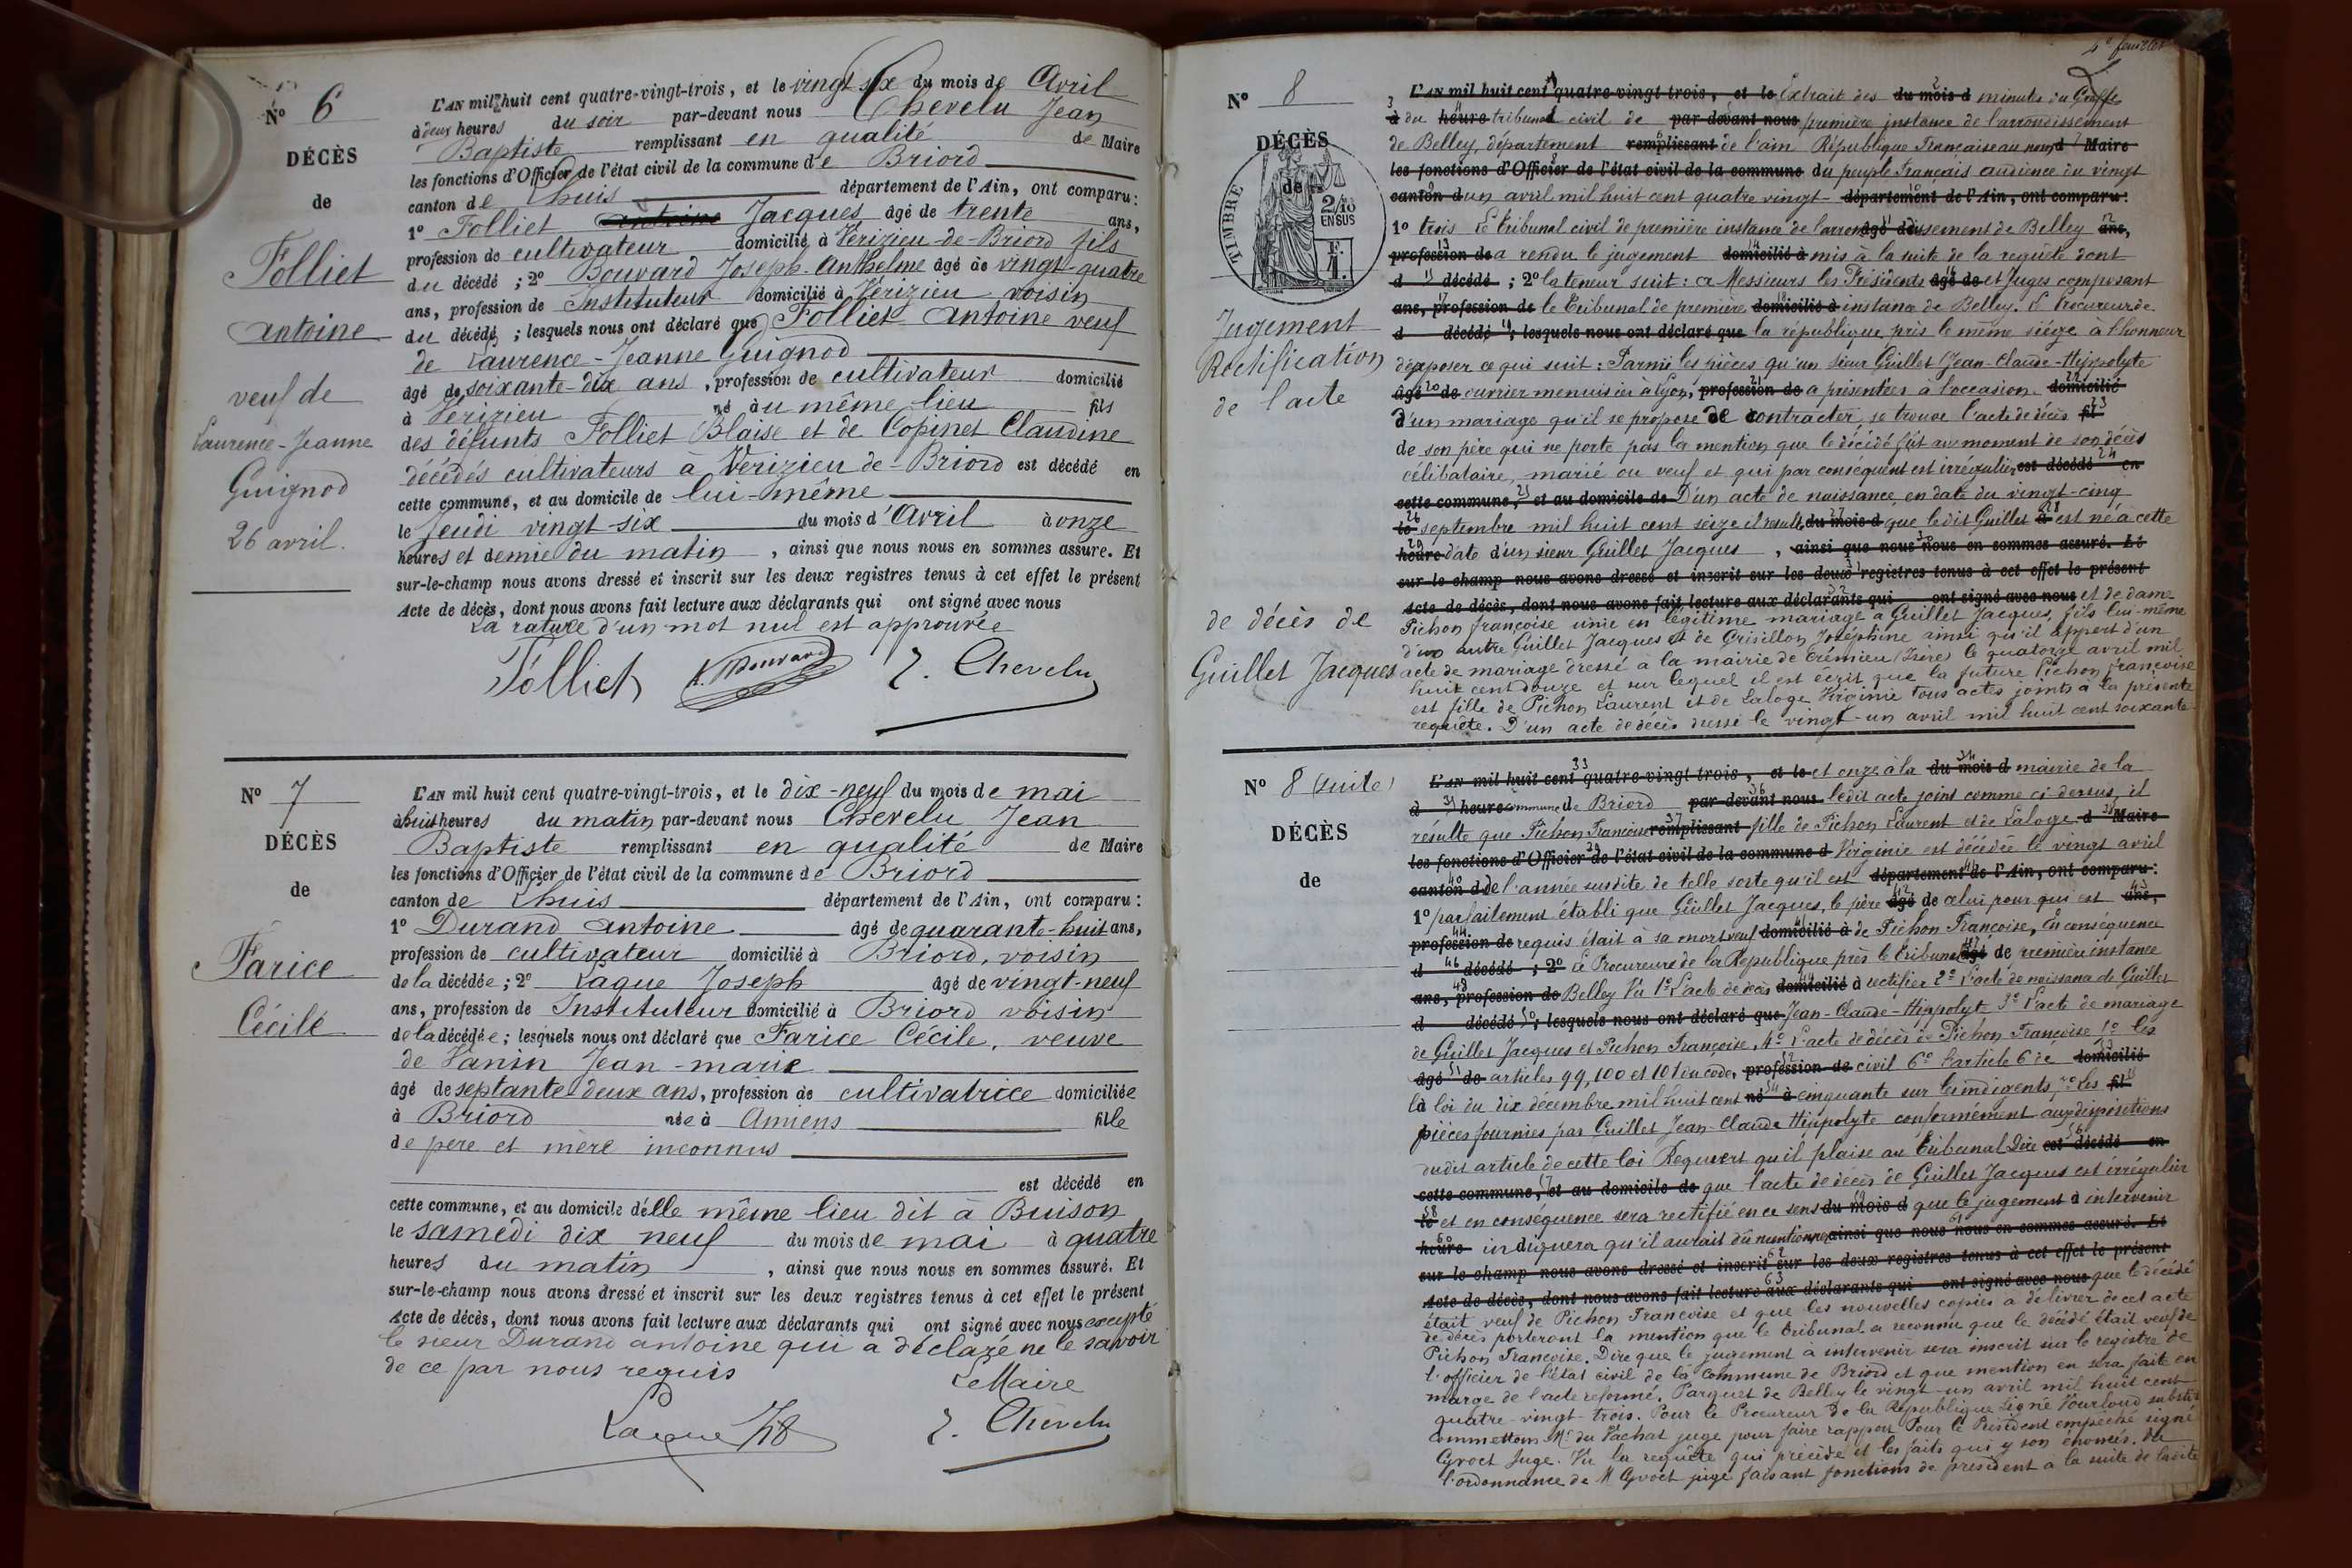 N° 6
DÉCÈS
de
Folliet
Antoine
veuf de
Laurence-Jeanne
Guignod
26 avril.
L'AN mil huit cent quatre-vingt-trois, et le vingt six du mois de Avril
à deux heures du soir par-devant nous Chevelu Jean
Baptiste remplissant en qualité de Maire
les fonctions d'Officier de l'état civil de la commune de Briord
canton de Lhuis département de l'Ain, ont comparu:
1° Folliet Antoine Jacques âgé de trente ans,
profession de cultivateur domicilié à Vérizieu-de-Briord fils
du décédé; 2° Bouvard Joseph-Anthelme âgé de vingt-quatre
ans, profession de Instituteur domicilié à Vérizieu voisin
du décédé; lesquels nous ont déclaré que Folliet Antoine veuf
de Laurence-Jeanne Guignod
âgé de soixante-dix ans, profession de cultivateur domicilié
à Vérizieu né au même lieu fils
des défunts Folliet Blaise et de Copinet Claudine
décédés cultivateurs à Vérizieu de-Briord est décédé en
cette commune, et au domicile de lui-même
le Jeudi vingt-six du mois d'Avril à onze
heures et demie du matin, ainsi que nous nous en sommes assuré. Et
sur-le-champ nous avons dressé et inscrit sur les deux registres tenus à cet effet le présent
Acte de décès, dont nous avons fait lecture aux déclarants qui ont signé avec nous
La rature d'un mot nul est approuvée
Folliet Bouvard J. Chevelu
N° 7
DÉCÈS
de
Farice
Cécile
L'AN mil huit cent quatre-vingt-trois, et le dix-neuf du mois de mai
à huit heures du matin par-devant nous Chevelu Jean
Baptiste remplissant en qualité de Maire
les fonctions d'Officier de l'état civil de la commune de Briord
canton de Lhuis département de l'Ain, ont comparu:
1° Durand Antoine âgé de quarante-huit ans,
profession de cultivateur domicilié à Briord, voisin
de la décédée; 2° Laque Joseph âgé de vingt-neuf
ans, profession de Instituteur domicilié à Briord voisin
de la décédée; lesquels nous ont déclaré que Farice Cécile, veuve
de Vanin Jean-marie
âgé de septante deux ans, profession de cultivatrice domiciliée
à Briord née à Amiens fille
de père et mère inconnus
est décédé en
cette commune, et au domicile d'elle même lieu dit à Buison
le samedi dix neuf du mois de mai à quatre
heures du matin, ainsi que nous nous en sommes assuré. Et
sur-le-champ nous avons dressé et inscrit sur les deux registres tenus à cet effet le présent
Acte de décès, dont nous avons fait lecture aux déclarants qui ont signé avec nous excepté
le sieur Durand antoine qui a déclaré ne le savoir
de ce par nous requis
Le Maire
Laque J. Chevelu
4e feuillet
N° 8
DÉCÈS
de
TIMBRE
2/10
EN SUS
Jugement
Rectification
de l'acte
de décès de
Guillet Jacques
L'AN mil huit cent quatre-vingt-trois, et le Extrait des du mois d minutes du Greffe
à du heure tribunal civil de par-devant nous première instance de l'arrondissement
de Belley, département remplissant de l'ain République Française au nom d Maire
les fonctions d'Officier de l'état civil de la commune du peuple Français audience du vingt
canton d un avril mil huit cent quatre vingt- département de l'Ain, ont comparu:
1° trois Le tribunal civil de première instance de l'arron âgé de dissement de Belley ans,
profession de a rendu le jugement domicilié à mis à la suite de la requête dont
d décédé; 2° la teneur suit: à Messieurs les Présidents âgé de et Juges composant
ans, profession de le Tribunal de première domicilié à instance de Belley. Le Procureur de
d décédé; lesquels nous ont déclaré que la république près le même siège a l'honneur
d'exposer ce qui suit: Parmi les pièces qu'un sieur Guillet Jean-Claude-Hippolyte
âgé de ouvrier menuisier à Lyon, profession de a présentées à l'occasion domicilié
d'un mariage qu'il se propose de contracter, se trouve l'acte de décès fil
de son père qui ne porte pas la mention que le décédé fût au moment de son décès
célibataire, marié ou veuf et qui par conséquent est irrégulier est décédé en
cette commune, et au domicile de D'un acte de naissance en date du vingt-cinq
le septembre mil huit cent seize il résulte du mois d que ledit Guillet à est né à cette
heure date d'un sieur Guillet Jacques, ainsi que nous nous en sommes assuré. Et
sur-le-champ nous avons dressé et inscrit sur les deux registres tenus à cet effet le présent
Acte de décès, dont nous avons fait lecture aux déclarants qui ont signé avec nous et de dame
Pichon françoise unie en légitime mariage à Guillet Jacques, fils lui-même
d'un autre Guillet Jacques et de Josephine ainsi qu'il appert d'un
acte de mariage dressé à la mairie de Crémieu (Isère) le quatorze avril mil
huit cent douze et sur lequel il est écrit que la future Pichon françoise
est fille de Pichon Laurent et de Laloge Virginie tous actes joints à la présente
requête. D'un acte de décès dressé le vingt-un avril mil huit cent soixante
N° 8 (suite)
DÉCÈS
de
L'AN mil huit cent quatre-vingt-trois, et le et onze à la du mois d mairie de la
à heure commune de Briord par-devant nous ledit acte joint comme ci-dessus, il
résulte que Pichon Françoise remplissant fille de Pichon Laurent et de Laloge d Maire
les fonctions d'Officier de l'état civil de la commune d Virginie est décédée le vingt avril
canton d de l'année susdite de telle sorte qu'il est département de l'Ain, ont comparu:
1° parfaitement établi que Guillet Jacques, le père âgé de celui pour qui est ans,
profession de requis était à sa mort veuf domicilié à de Pichon Françoise, En conséquence
d décédé; 2° Le Procureur de la République près le tribunal âgé de première instance
ans, profession de Belley Vu 1° L'acte de décès domicilié à rectifier 2° L'acte de naissance de Guillet
d décédé; lesquels nous ont déclaré que Jean-Claude-Hippolyte 3° L'acte de mariage
de Guillet Jacques et Pichon Françoise, 4° L'acte de décès de Pichon Françoise 5° les
âgé de articles 99, 100 et 101 du code, profession de civil 6° L'article 6 de domicilié
la loi du dix décembre mil huit cent né à cinquante sur les indigents, 7° les fil
pièces fournies par Guillet Jean-Claude Hippolyte conformément aux dispositions
dudit article de cette loi Requiert qu'il plaise au Tribunal Dire est décédé en
cette commune, et au domicile de que l'acte de décès de Guillet Jacques est irrégulier
le et en conséquence sera rectifié en ce sens du mois d que le jugement à intervenir
heure indiquera qu'il aurait dû mentionner ainsi que nous nous en sommes assuré. Et
sur-le-champ nous avons dressé et inscrit sur les deux registres tenus à cet effet le présent
Acte de décès, dont nous avons fait lecture aux déclarants qui ont signé avec nous que le décédé
était veuf de Pichon Françoise et que les nouvelles copies à délivrer de cet acte
de décès porteront la mention que le tribunal a reconnu que le décédé était veuf de
Pichon Françoise. Dire que le jugement à intervenir sera inscrit sur le registre de
l'officier de l'état civil de la commune de Briord et que mention en sera faite en
marge de l'acte reformé. Parquet de Belley le vingt-un avril mil huit cent
quatre-vingt-trois. Pour le Procureur de la République Signé substit
Commettons Mr du Vachat juge pour faire rapport Pour le Président empêché signé
Gyvoct Juge. Vu la requête qui précède et les faits qui y son énoncés. Vu
l'ordonnance de M Gyvoct juge faisant fonctions de président à la suite de ladite